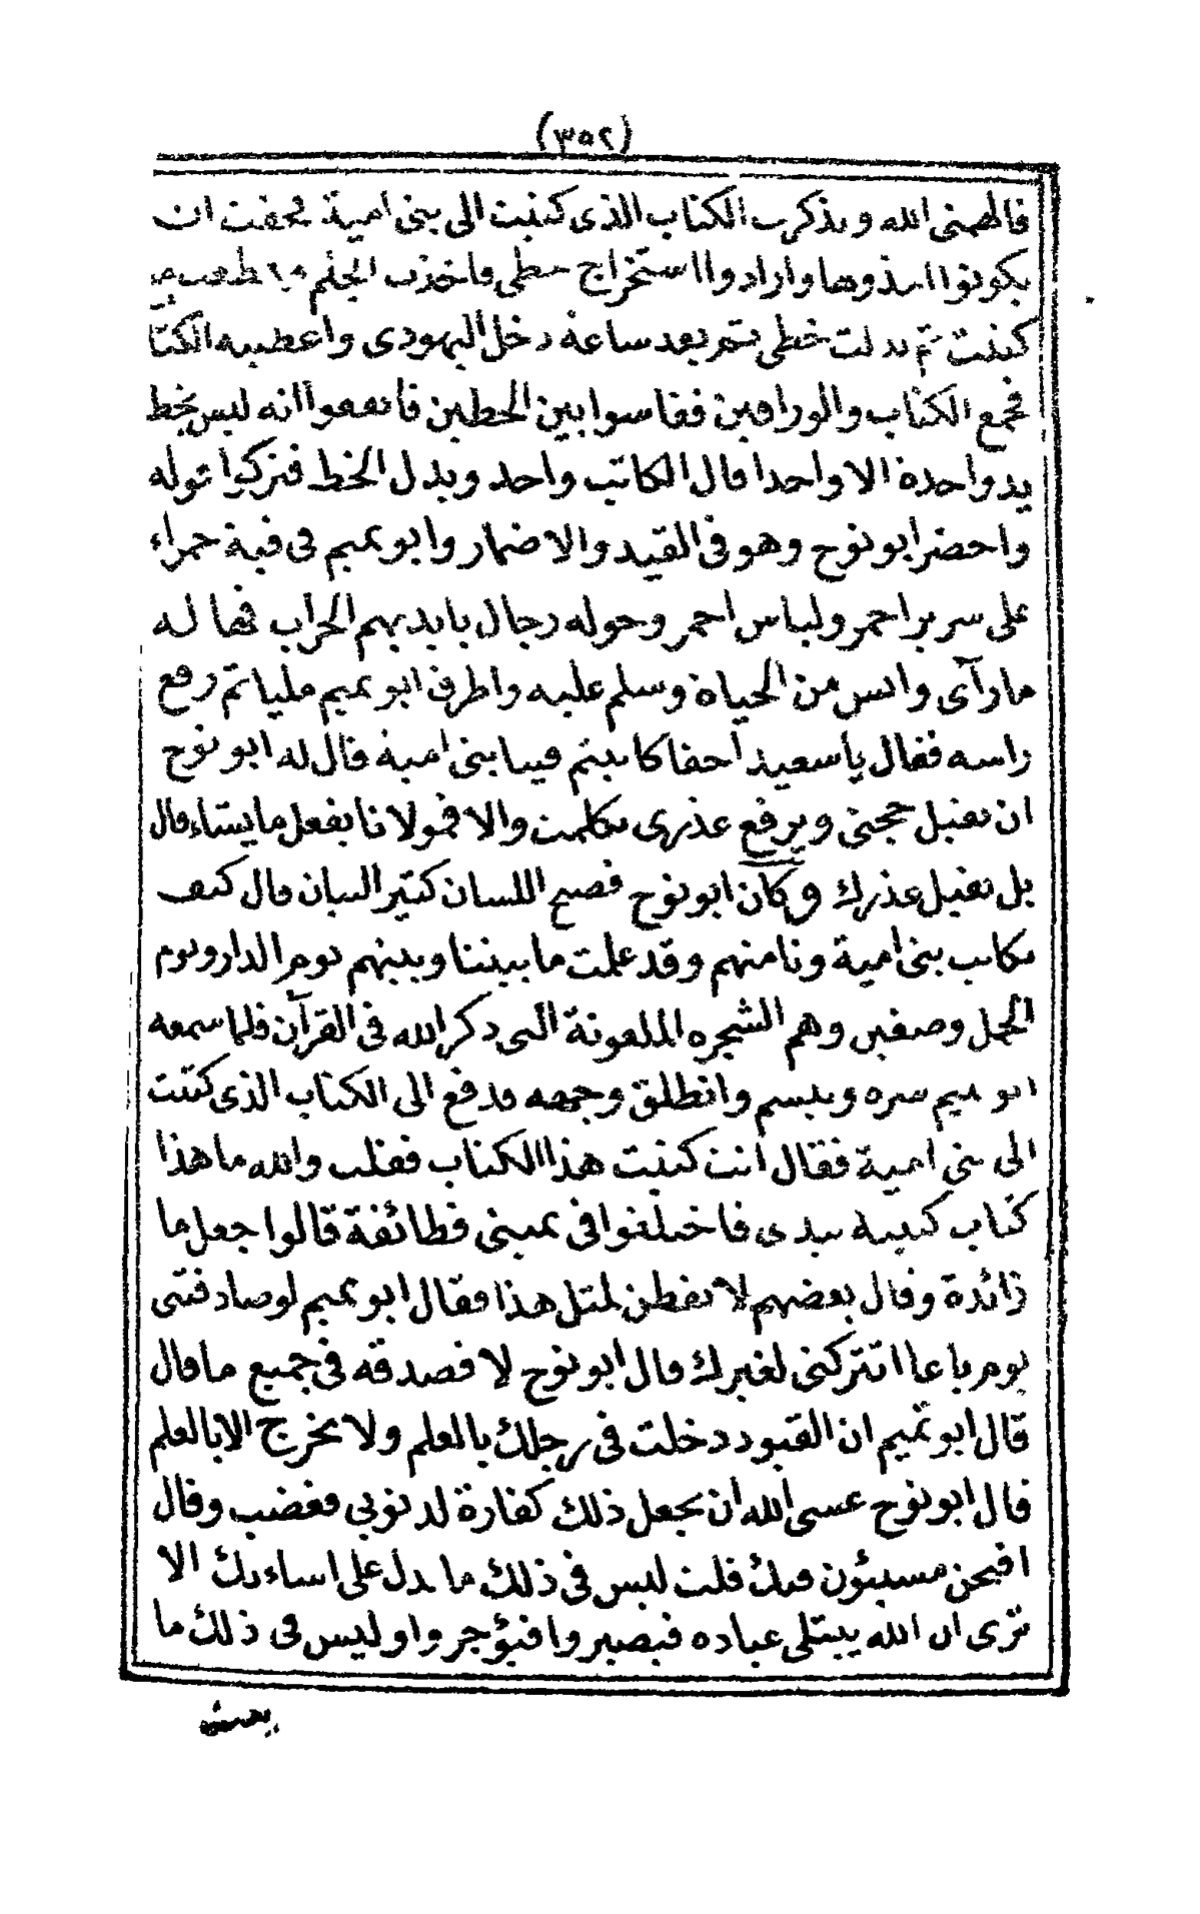 (٣٥٢)
فالهمنى الله وتذكرت الكتاب الذى كتبت الى بنى امية فخفت ان
يكونوا انفذوها وارادوا استخراج خطى فاخذت القلم
كتبت ثم بدلت خطى ثم بعد ساعة دخل اليهودى واعطيته الكتا
فجمع الكتاب والوراقين فقاسوا بين الخطين فاتفقوا انه ليس بخط
يد واحدة الا واحدا قال الكاتب واحد وبدل الخط فتركوا قوله
واحضر ابو نوح وهو فى القيد والاضمار وابو تميم فى قبة حمراء
على سرير احمر ولباس احمر وحوله رجال بايديهم الحراب فهاله
ما رآى وايس من الحياة وسلم عليه واطرق ابو تميم مليا ثم رفع
راسه فقال يا سعيد احقا كاتبتم فينا بنى امية قال له ابو نوح
ان تقبل حجتى ويرفع عذرى تكلمت والا فمولانا يفعل ما يشاء قال
بل نقبل عذرك وكان ابو نوح فصيح اللسان كثير البيان قال كيف
نكاتب بنى امية ونامنهم وقد علمت ما بيننا وبينهم يوم الدار ويوم
الجمل وصفين وهم الشجره الملعونة التى ذكر الله فى القرآن فلما سمعه
ابو تميم سره وتبسم وانطلق وجهه ودفع الى الكتاب الذى كتبت
الى بنى امية فقال انت كتبت هذا الكتاب فقلت والله ما هذا
كتاب كتبته بيدى فاختلفوا فى يمينى فطائفة قالوا جعل ما
زائدة وقال بعضهم لا يفطن لمثل هذا فقال ابو تميم لو صادفتنى
يوم باغا اتتركنى لغيرك قال ابو نوح لا فصدقه فى جميع ما قال
قال ابو تميم ان القيود دخلت فى رجلك بالعلم ولا تخرج الا بالعلم
قال ابو نوح عسى الله ان يجعل ذلك كفارة لذنوبى فغضب وقال
افنحن مسيئون فيك قلت ليس فى ذلك ما يدل على اساءتك الا
ترى ان الله يبتلى عباده فبصبر وا فيؤجر وا وليس فى ذلك ما